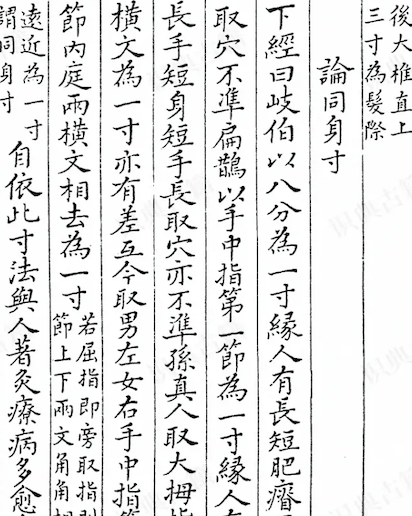 後大椎直上
三寸為髮際
論同身寸
下經曰岐伯以八分為一寸縁人有長短肥瘠
取穴不準扁鵲以手中指第一節為一寸縁人有
長手短身短手長取穴亦不準孫真人取大拇指
橫文為一寸亦有差互今取男左女右手中指第
節內庭兩橫文相去為一寸
若屈指即旁取指則
節上下兩文角角相
遠近為一寸
謂同身寸
自依此寸法與人著灸療病多愈